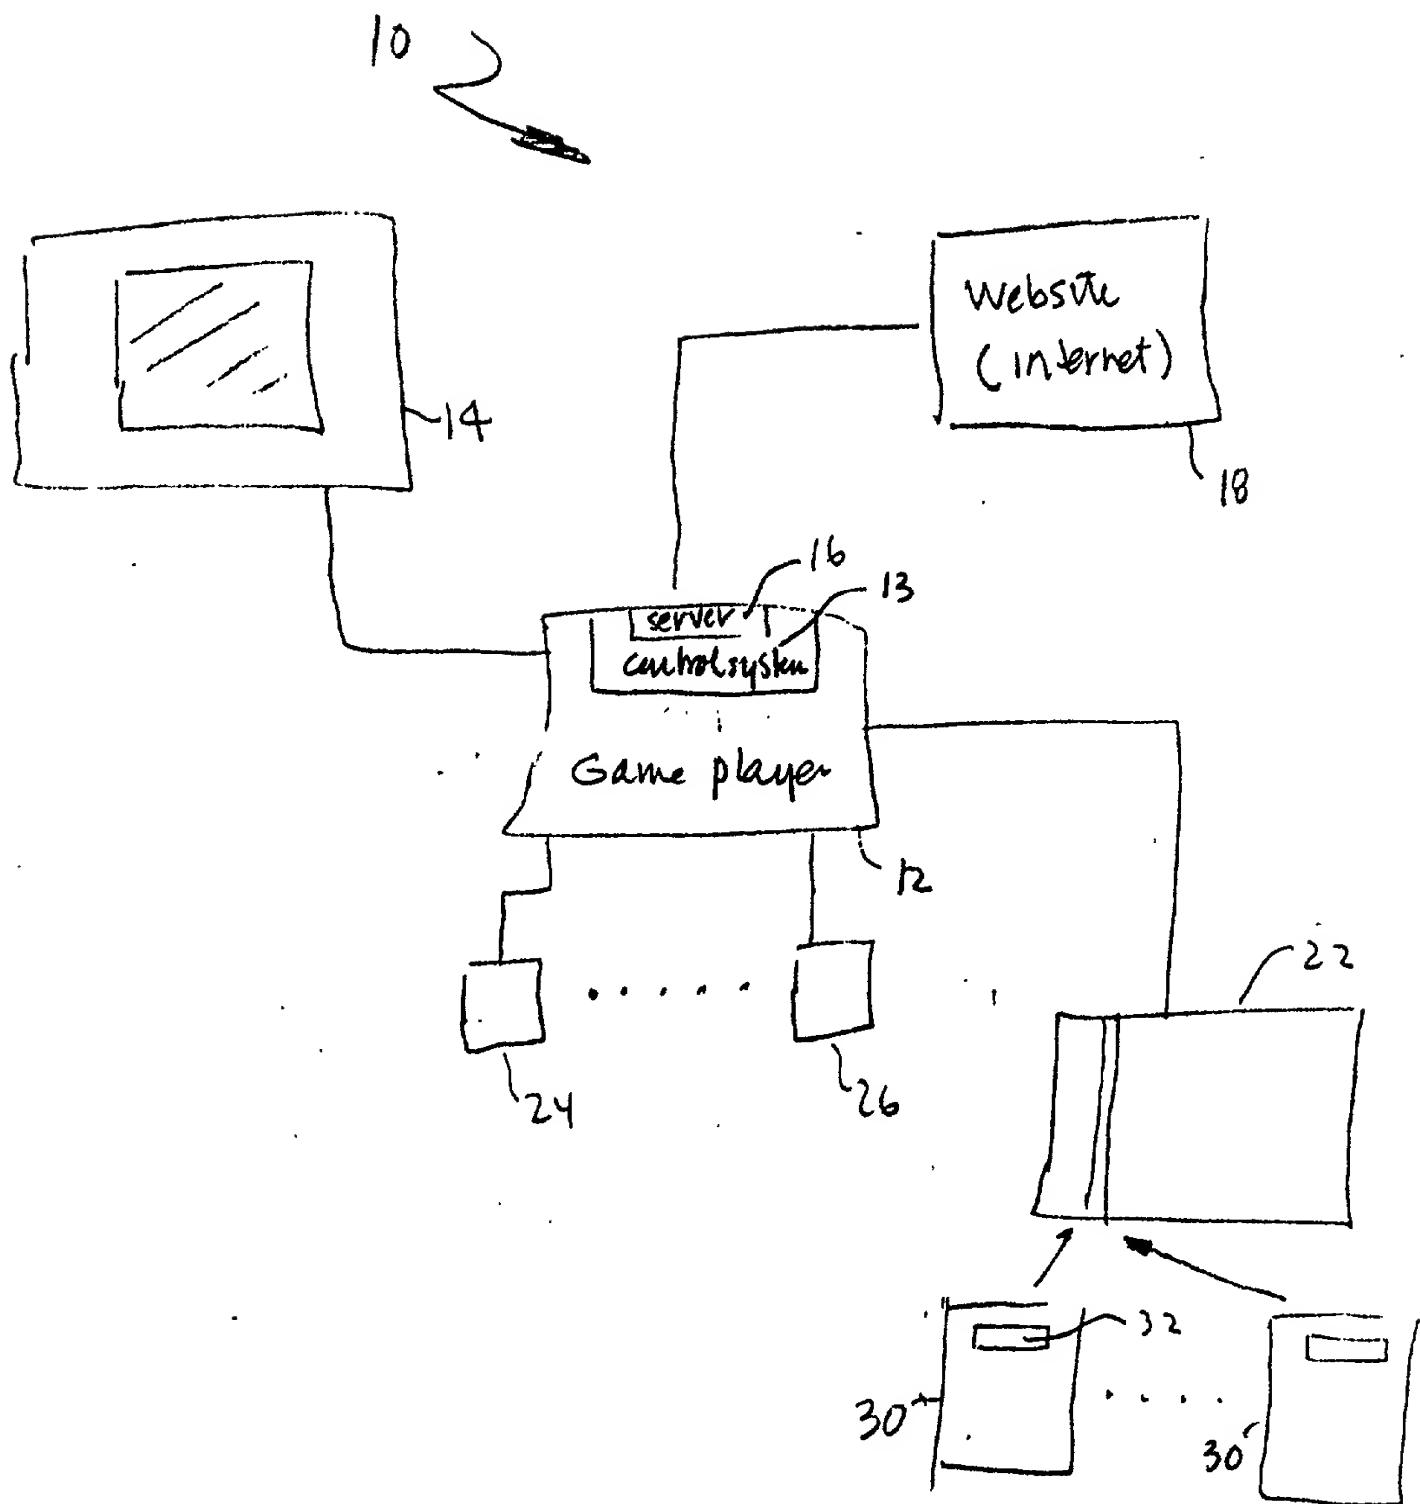 10
14
Website
(internet)
18
16
13
server
control system
Game player
12
22
24
26
32
30
30